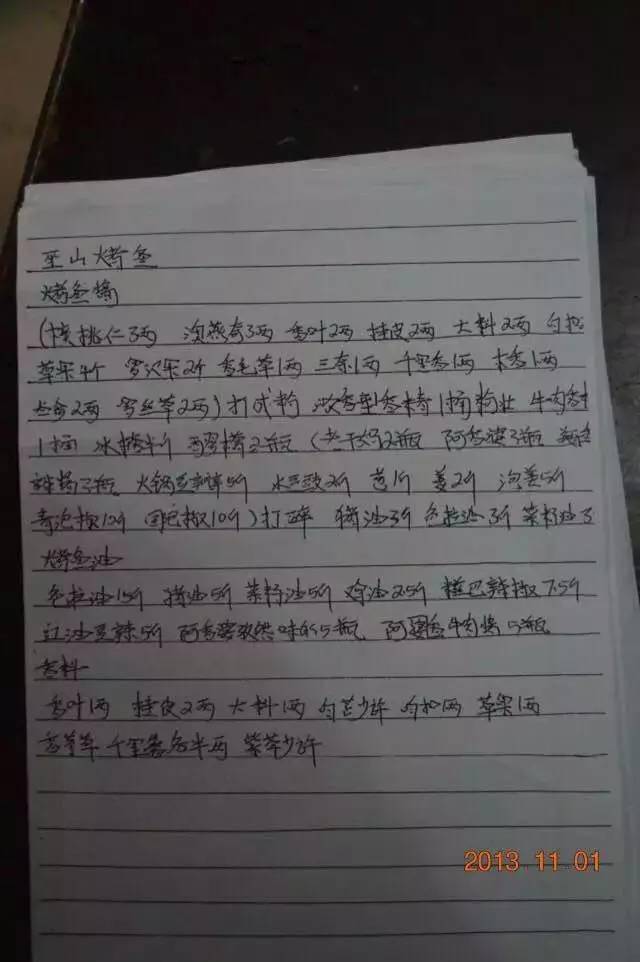 巫山烤鱼
烤鱼酱
(核桃仁3两 澳燕麦3两 香叶2两 桂皮2两 大料2两 白扣
草果4个 罗汉果2个 香毛草1两 三奈1两 千里香1两 木香1两
2两 2两)打成粉 1桶 牛肉
1桶 冰糖半斤 2瓶 (老干妈2瓶 阿香婆3瓶
火锅豆瓣5斤 水豆豉2斤 葱1斤 姜2斤 泡姜5斤
青泡椒10斤 10斤)打碎 猪油3斤 色拉油3斤 菜籽油3
烤鱼油
色拉油15斤 猪油5斤 菜籽油5斤 鸡油2.5斤 糍巴辣椒7.5斤
红油豆辣5斤 阿香婆 味的5瓶 阿婆香牛肉酱5瓶
香料
香叶1两 桂皮2两 大料1两 白芷少许 白扣1两 草果1两
香茅草 千里香各半两 紫草少许
2013 11 01